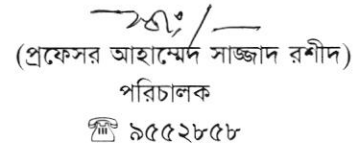 (প্রফেসর আহাম্মেদ সাজ্জাদ রশীদ)
পরিচালক
☎ ৯৫৫২৮৫৮